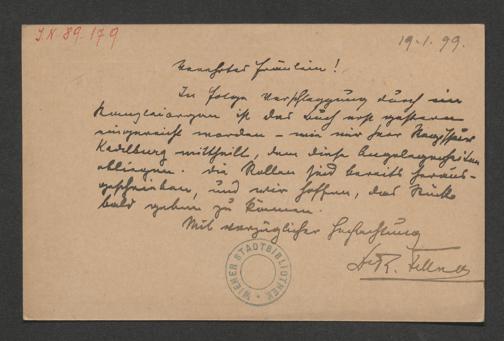 J.N. 89.179
19.1.99.
Verehrtes Fräulein!
In Folge Verschleppung durch ein
Kanzleiorgan ist das Buch erst gestern
eingereicht worden – wie mir Herr
Kadelburg mittheilt, dem diese Angelegenheiten
obliegen. Die Rollen sind bereits heraus-
geschrieben, und wir hoffen, das Stück
bald geben zu können.
Mit vorzüglicher Hochachtung
Dr R. Fellner
WIENER STADTBIBLIOTHEK